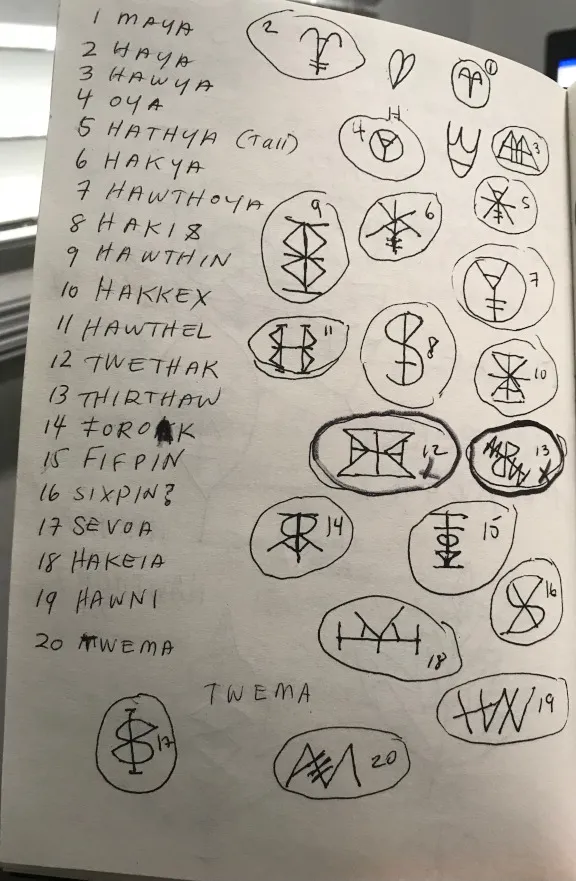 1 MAYA
2 HAYA
3 HAWYA
4 OYA
5 HATHYA (Tall)
6 HAKYA
7 HAWTHOYA
8 HAKIS
9 HAWTHIN
10 HAKKEX
11 HAWTHEL
12 TWETHAK
13 THIRTHAW
14 FOROAK
15 FIFPIN
16 SIXPIN?
17 SEVOA
18 HAKEIA
19 HAWNI
20 MWEMA
TWEMA
2
1
H
4
3
5
9
6
7
11
8
10
12
13
14
15
16
18
19
17
20